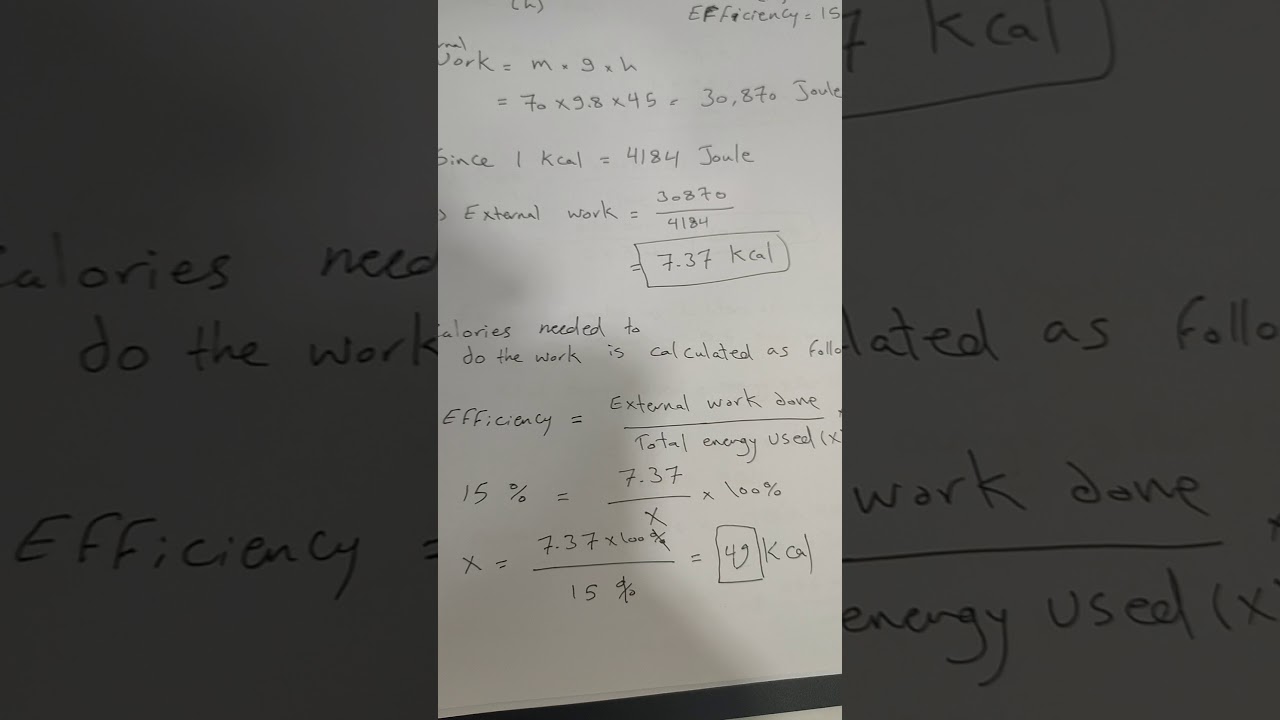 (h)
Efficiency = 15
Work = m × g × h
= 70 × 9.8 × 45 = 30,870 Joule
Since 1 Kcal = 4184 Joule
External work = 30870
4184
= 7.37 Kcal
Calories needed to
do the work is calculated as follo
Efficiency = External work done
Total energy used (x)
15 % = 7.37 × 100%
x
x = 7.37 × 100% = 49 Kcal
15 %